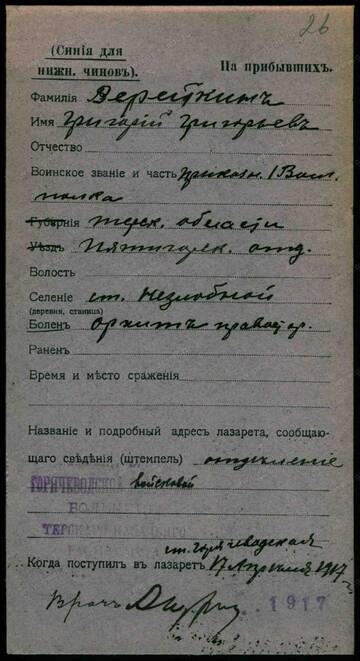 26
(Синія для
нижн. чиновъ).
На прибывшихъ.
Фамилія Вереткинъ
Имя Григорій Григорьев
Отчество
Воинское званіе и часть 1 Волг.
полка
Губернія терск. области
Уѣздъ Пятигорск. отд.
Волость
Селеніе ст. Незлобной
(деревня, станица)
Боленъ орхитъ правостор.
Раненъ
Время и мѣсто сраженія
Названіе и подробный адресъ лазарета, сообщаю-
щаго свѣдѣнія (штемпель) отдѣленіе
ГОРЯЧЕВОДСКОЙ войсковой
ст. Горячеводская
Когда поступилъ въ лазаретъ 17 Апрѣля 1917 г.
Врач
1917